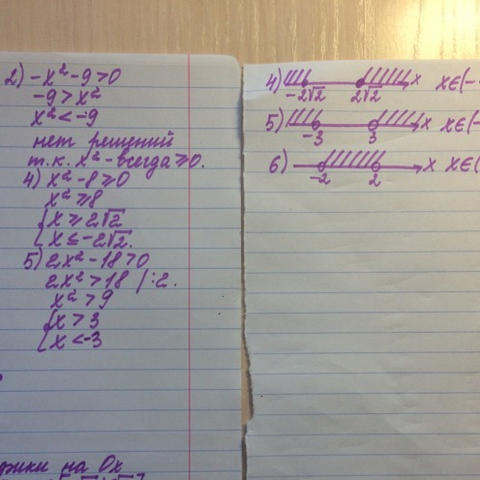 2) -x² - 9 > 0
-9 > x²
x² < -9
нет решений
т.к. x² - всегда ≥ 0.
4) x² - 8 ≥ 0
x² ≥ 8
[ x ≥ 2√2
[ x ≤ -2√2.
5) 2x² - 18 > 0
2x² > 18 /:2.
x² > 9
[ x > 3
[ x < -3
на Ox
4) -2√2 2√2 x x∈(-
5) -3 3 x x∈(-
6) -2 2 x x∈(